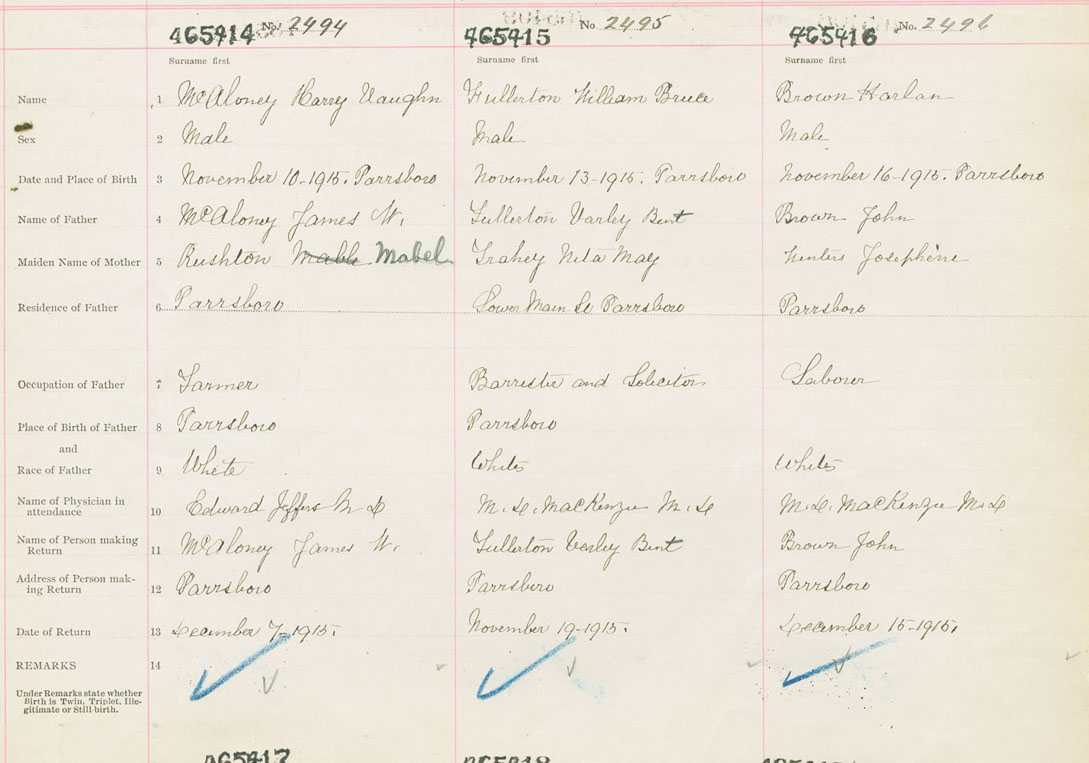 465414 No. 2494 465415 No. 2495 465416 No. 2496
Surname first Surname first Surname first
Name 1 McAloney Harry Vaughn Fullerton William Bruce Brown Harlan
Sex 2 Male Male Male
Date and Place of Birth 3 November 10-1915. Parrsboro November 13-1915. Parrsboro November 16-1915. Parrsboro
Name of Father 4 McAloney James W. Fullerton Varley Bent Brown John
Maiden Name of Mother 5 Rushton Mable Mabel Trahey Nita May Josephine
Residence of Father 6 Parrsboro Lower Main St Parrsboro Parrsboro
Occupation of Father 7 Farmer Barrister and Solicitor Labourer
Place of Birth of Father 8 Parrsboro Parrsboro
and
Race of Father 9 White White White
Name of Physician in
attendance 10 Edward Jeffers M D M. D. MacKenzie M.D M.D. MacKenzie M.D
Name of Person making
Return 11 McAloney James W. Fullerton Varley Bent Brown John
Address of Person mak-
ing Return 12 Parrsboro Parrsboro Parrsboro
Date of Return 13 December 7-1915. November 19-1915. December 15-1915.
REMARKS 14
Under Remarks state whether
Birth is Twin, Triplet, Ille-
gitimate or Still-birth.
465417 465418